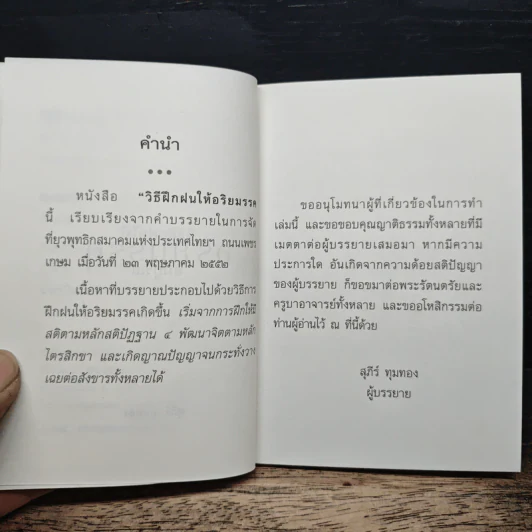 คำนำ
หนังสือ "วิธีฝึกฝนให้อริยมรรค
นี้ เรียบเรียงจากคำบรรยายในการจัด
ที่ยุวพุทธิกสมาคมแห่งประเทศไทยฯ ถนนเพชร
เกษม เมื่อวันที่ ๒๓ พฤษภาคม ๒๕๕๒
เนื้อหาที่บรรยายประกอบไปด้วยวิธีการ
ฝึกฝนให้อริยมรรคเกิดขึ้น เริ่มจากการฝึกให้มี
สติตามหลักสติปัฏฐาน ๔ พัฒนาจิตตามหลัก
ไตรสิกขา และเกิดญาณปัญญาจนกระทั่งวาง
เฉยต่อสังขารทั้งหลายได้
ขออนุโมทนาผู้ที่เกี่ยวข้องในการทำ
เล่มนี้ และขอขอบคุณญาติธรรมทั้งหลายที่มี
เมตตาต่อผู้บรรยายเสมอมา หากมีความ
ประการใด อันเกิดจากความด้อยสติปัญญา
ของผู้บรรยาย ก็ขอขมาต่อพระรัตนตรัยและ
ครูบาอาจารย์ทั้งหลาย และขออโหสิกรรมต่อ
ท่านผู้อ่านไว้ ณ ที่นี้ด้วย
สุภีร์ ทุมทอง
ผู้บรรยาย